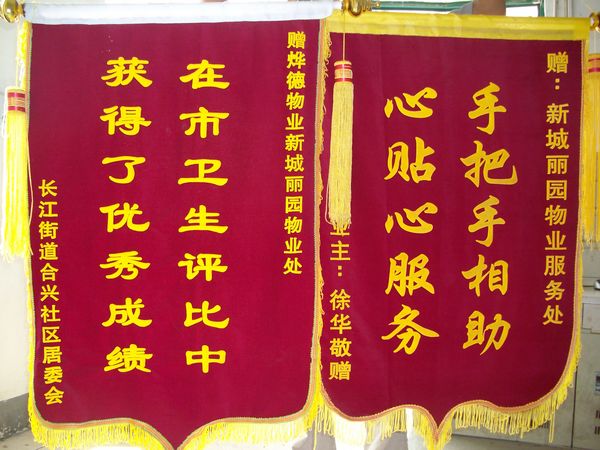 赠烨德物业新城丽园物业处
在市卫生评比中
获得了优秀成绩
长江街道合兴社区居委会
赠：新城丽园物业服务处
手把手相助
心贴心服务
业主：徐华敬赠